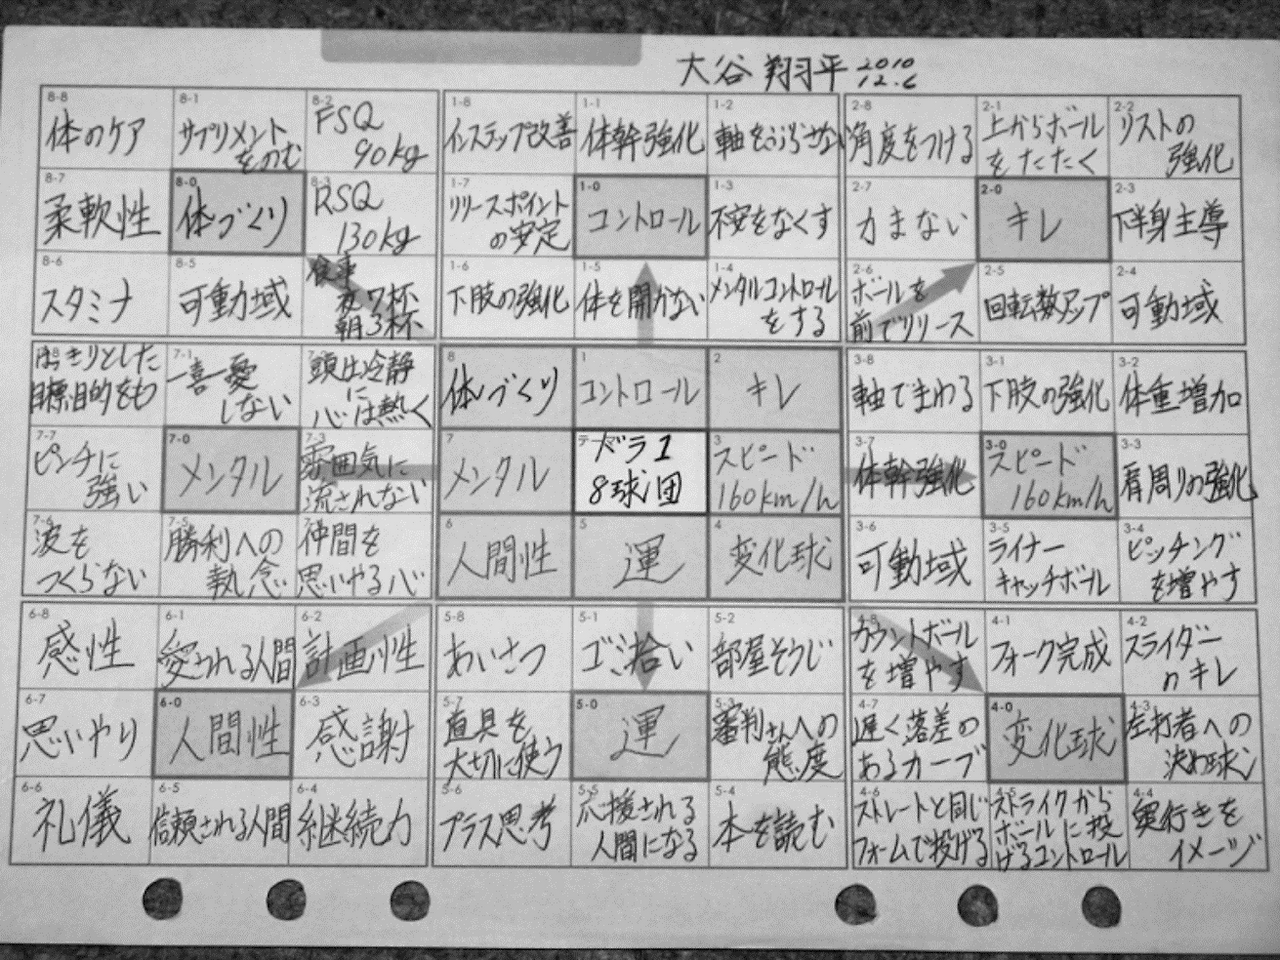 大谷 翔平 2010
12.6
8-8
体のケア
8-1
サプリメント
をのむ
8-2
FSQ
90kg
8-7
柔軟性
8-0
体づくり
8-3
RSQ
130kg
8-6
スタミナ
8-5
可動域
食事
夜7杯
朝3杯
1-8
インステップ改善
1-1
体幹強化
1-2
軸をぶらさない
1-7
リリースポイント
の安定
1-0
コントロール
1-3
不安をなくす
1-6
下肢の強化
1-5
体を開かない
1-4
メンタルコントロール
をする
2-8
角度をつける
2-1
上からボール
をたたく
2-2
リストの
強化
2-7
力まない
2-0
キレ
2-3
下半身主導
2-6
ボールを
前でリリース
2-5
回転数アップ
2-4
可動域
はっきりとした
目標、目的をもつ
7-1
一喜一憂
しない
頭は冷静
に
心は熱く
7-7
ピンチに
強い
7-0
メンタル
7-3
雰囲気に
流されない
7-6
波を
つくらない
7-5
勝利への
執念
仲間を
思いやる心
8
体づくり
1
コントロール
2
キレ
7
メンタル
テーマ
ドラ1
8球団
3
スピード
160km/h
6
人間性
5
運
4
変化球
3-8
軸でまわる
3-1
下肢の強化
3-2
体重増加
3-7
体幹強化
3-0
スピード
160km/h
3-3
肩周りの強化
3-6
可動域
3-5
ライナー
キャッチボール
3-4
ピッチング
を増やす
6-8
感性
6-1
愛される人間
6-2
計画性
6-7
思いやり
6-0
人間性
6-3
感謝
6-6
礼儀
6-5
信頼される人間
6-4
継続力
5-8
あいさつ
5-1
ゴミ拾い
5-2
部屋そうじ
5-7
道具を
大切に使う
5-0
運
5-3
審判さんへの
態度
5-6
プラス思考
5-5
応援される
人間になる
5-4
本を読む
4-8
カウントボール
を増やす
4-1
フォーク完成
4-2
スライダー
のキレ
4-7
遅く落差の
あるカーブ
4-0
変化球
4-3
左打者への
決め球
4-6
ストレートと同じ
フォームで投げる
4-5
ストライクから
ボールに投
げるコントロール
4-4
奥行きを
イメージ